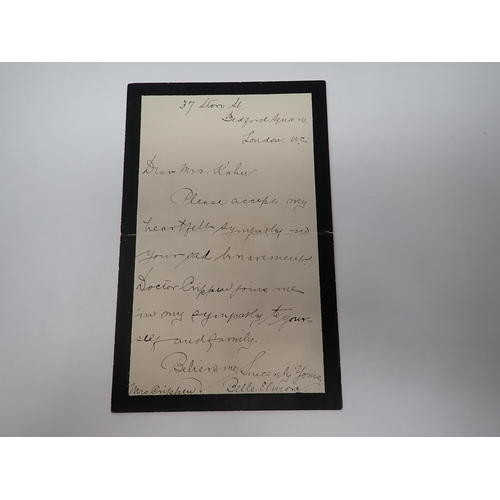 37 Store St
Bedford Square
London. W.C
Dear Mrs. Kahn
Please accept my
heartfelt sympathy in
your sad bereavement.
Doctor Crippen joins me
in my sympathy to your-
self and family.
Believe me Sincerely Yours
Mrs Crippen. Belle Elmore